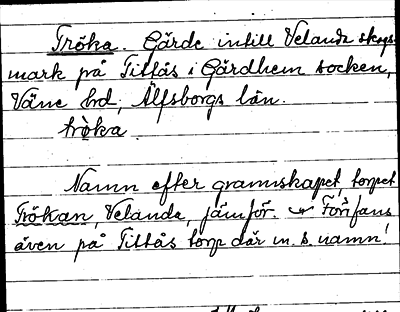 Tröka. Gärde intill Velanda skogs-
mark på Titfås i Gärdhem socken,
Väne hd, Älfsborgs län.
tròka
Namn efter grannskapet, torpet
Trökan, Velanda, jämför.
även på Tittås torp där m. s. namn!